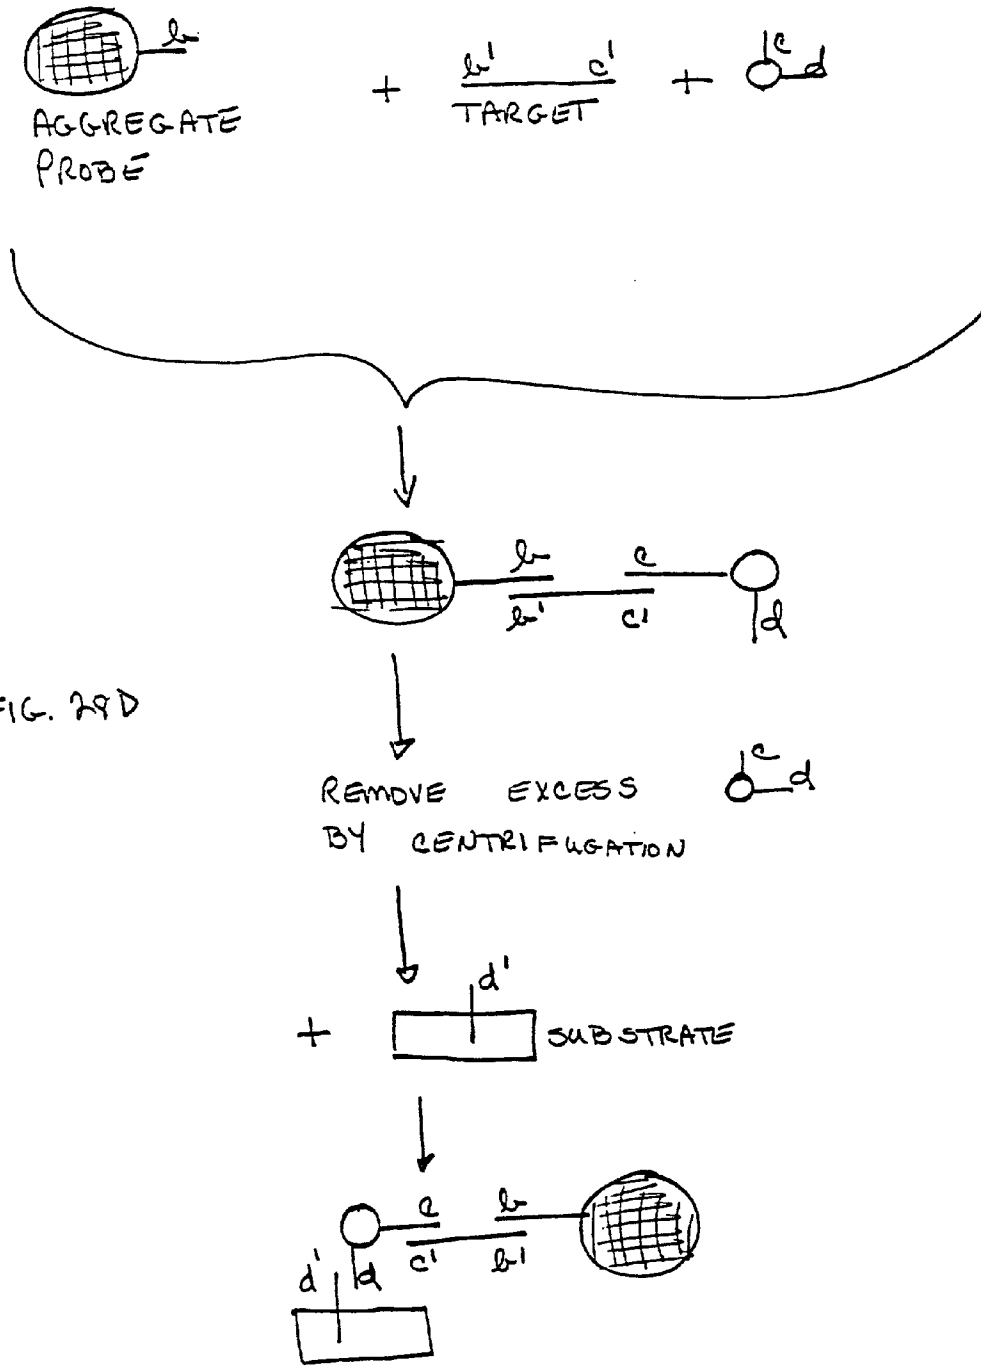 b
b' c'
c
d
AGGREGATE
PROBE
+ TARGET +
b c
b' c' d
FIG. 28D
REMOVE EXCESS
BY CENTRIFUGATION
c
d
d'
+ SUBSTRATE
c b
c' b'
d' d